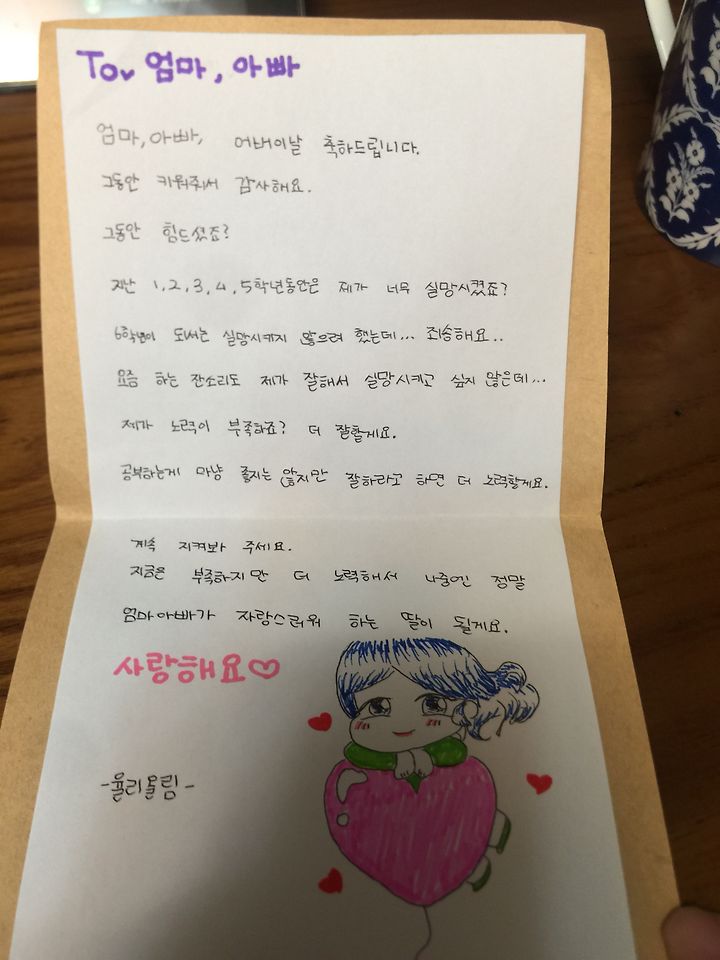 To 엄마, 아빠
엄마, 아빠, 어버이날 축하드립니다.
그동안 키워줘서 감사해요.
그동안 힘드셨죠?
지난 1, 2, 3, 4, 5학년동안은 제가 너무 실망시켰죠?
6학년이 되서는 실망시키지 않으려 했는데... 죄송해요..
요즘 하는 잔소리도 제가 잘해서 실망시키고 싶지 않은데...
제가 노력이 부족하죠? 더 잘할게요.
공부하는게 마냥 좋지는 않지만 잘하라고 하면 더 노력할게요.
계속 지켜봐 주세요.
지금은 부족하지만 더 노력해서 나중엔 정말
엄마아빠가 자랑스러워 하는 딸이 될게요.
사랑해요♡
-율리올림-